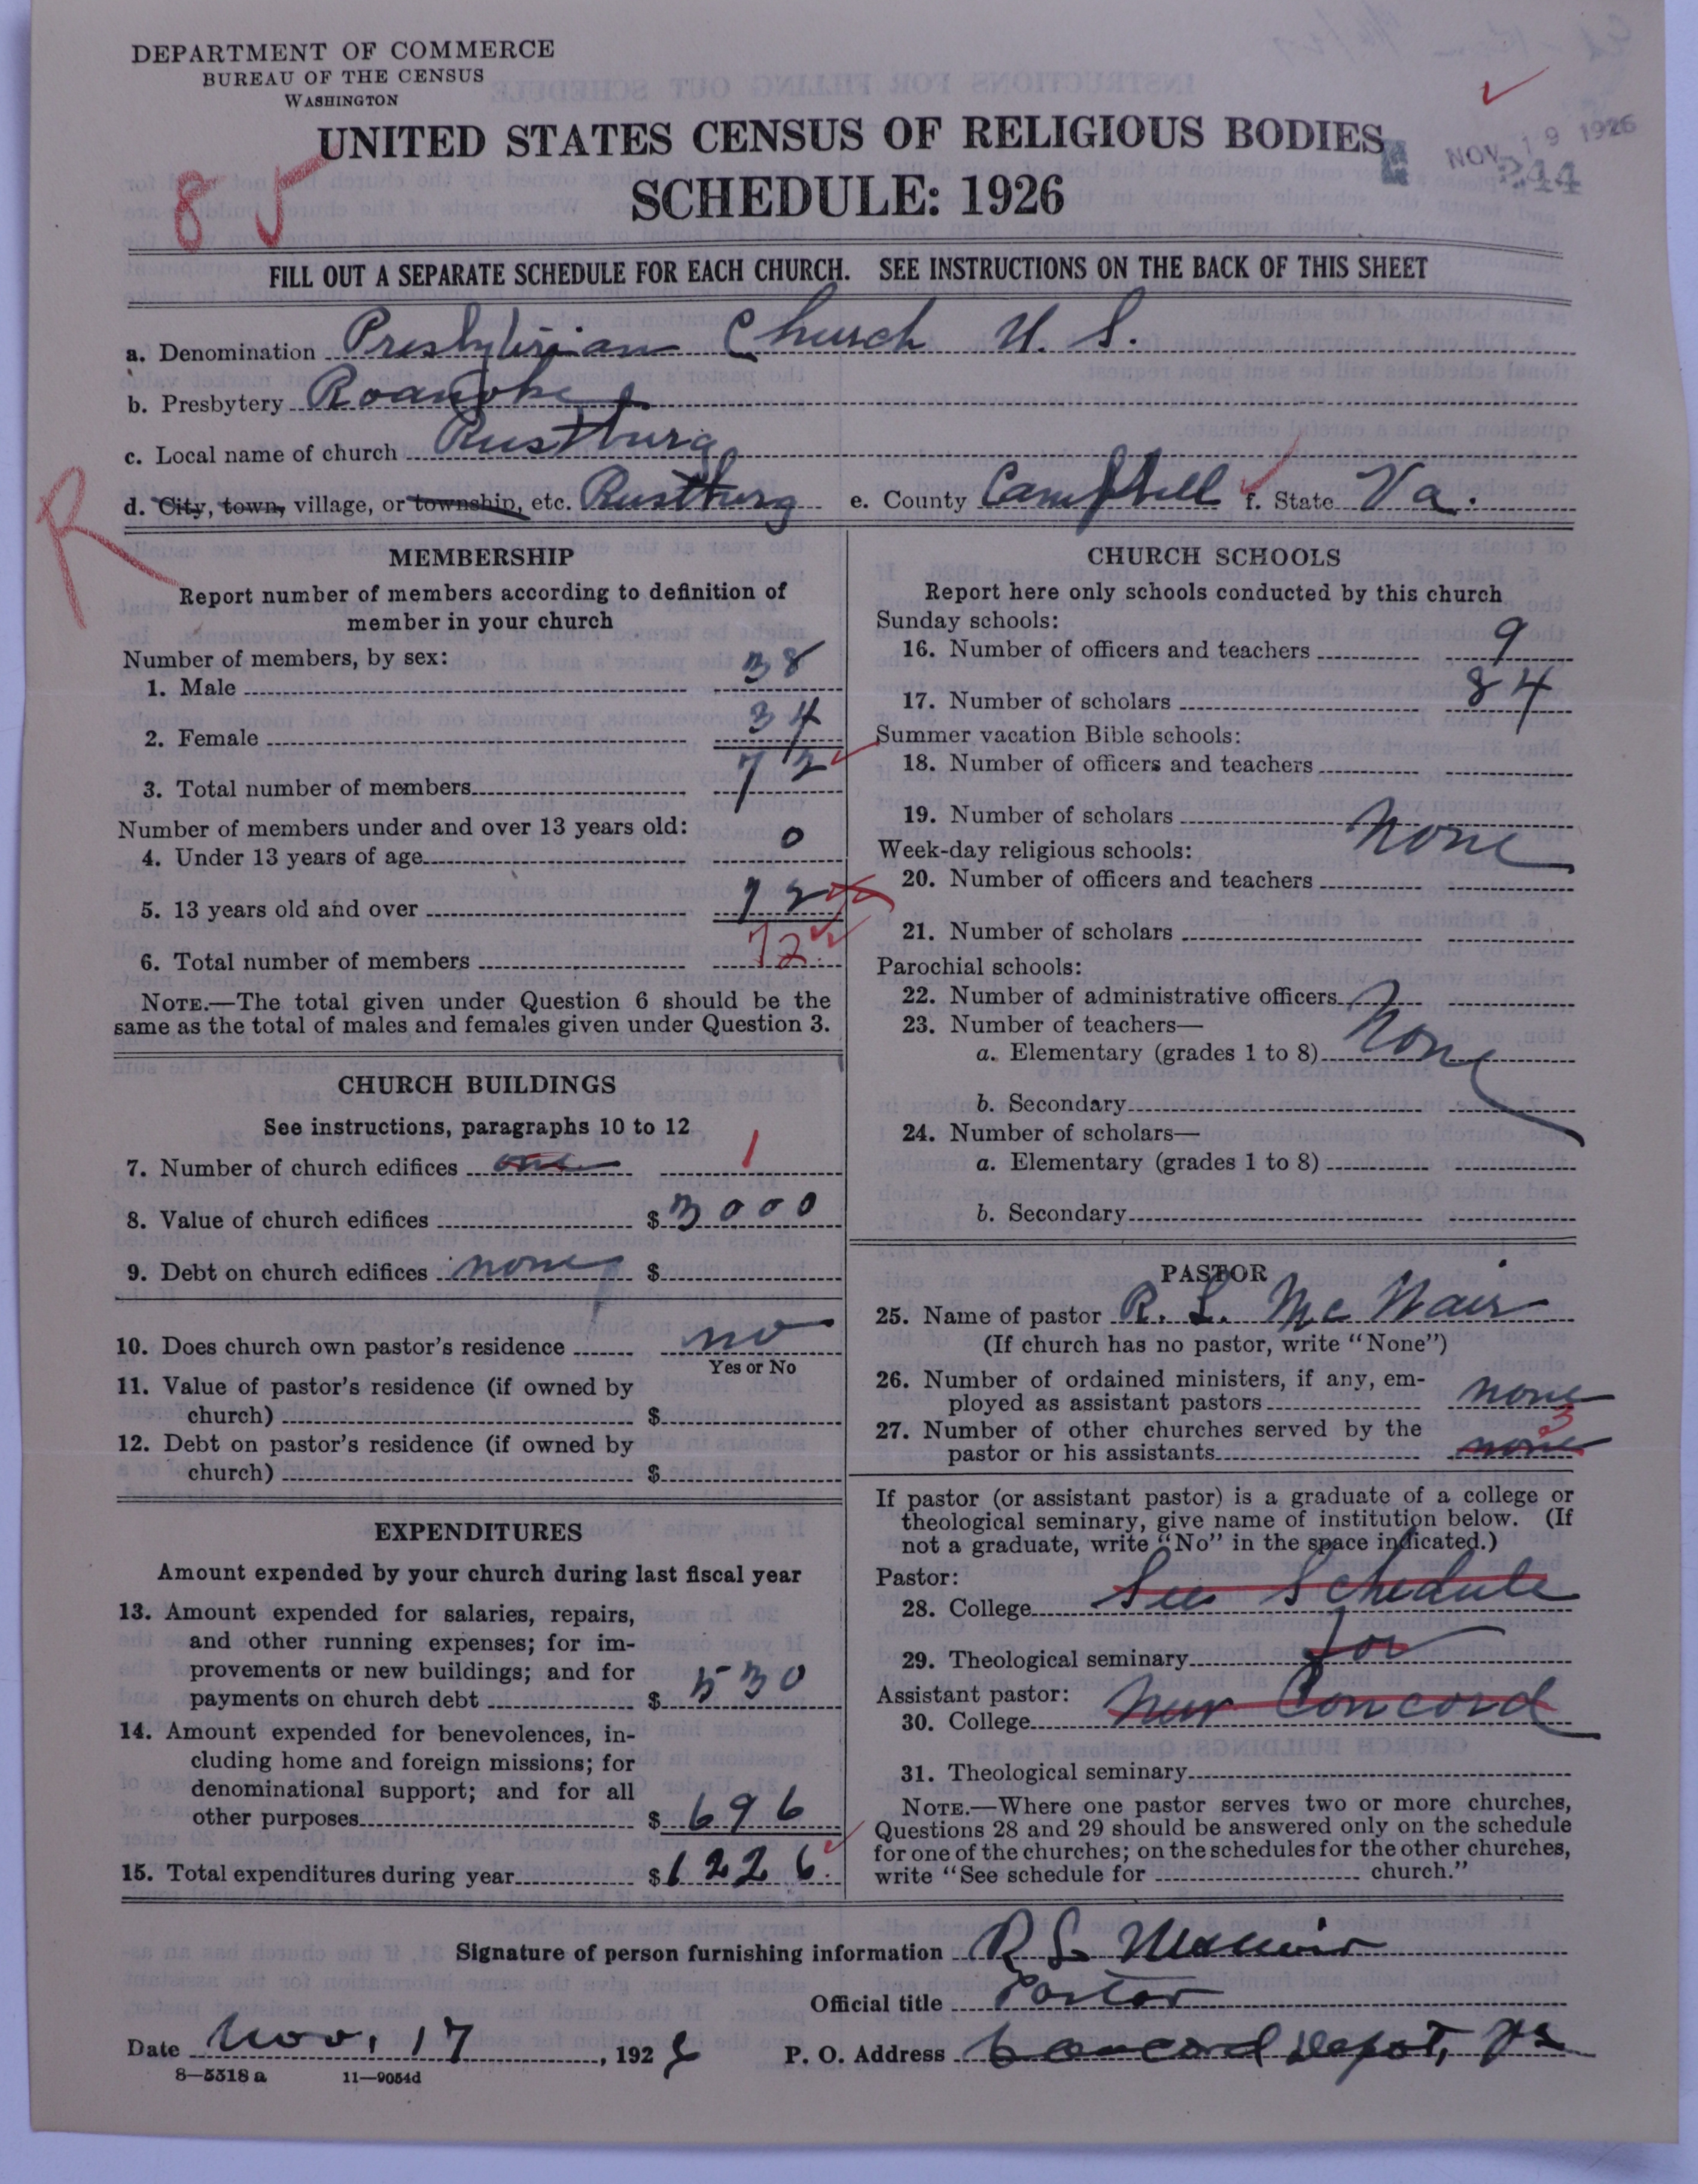 DEPARTMENT OF COMMERCE
BUREAU OF THE CENSUS
WASHINGTON
UNITED STATES CENSUS OF RELIGIOUS BODIES
SCHEDULE: 1926
NOV 19 1926
244
85
FILL OUT A SEPARATE SCHEDULE FOR EACH CHURCH. SEE INSTRUCTIONS ON THE BACK OF THIS SHEET
a. Denomination Presbyterian Church U. S.
b. Presbytery Roanoke
c. Local name of church Rustburg
d. City, town, village, or township, etc. Rustburg e. County Campbell f. State Va.
R
MEMBERSHIP
Report number of members according to definition of
member in your church
Number of members, by sex:
1. Male 38
2. Female 34
3. Total number of members 72
Number of members under and over 13 years old:
4. Under 13 years of age 0
5. 13 years old and over 72
6. Total number of members 72
NOTE.—The total given under Question 6 should be the
same as the total of males and females given under Question 3.
CHURCH BUILDINGS
See instructions, paragraphs 10 to 12
7. Number of church edifices one 1
8. Value of church edifices $3000
9. Debt on church edifices none $
10. Does church own pastor's residence no
Yes or No
11. Value of pastor's residence (if owned by
church) $
12. Debt on pastor's residence (if owned by
church) $
EXPENDITURES
Amount expended by your church during last fiscal year
13. Amount expended for salaries, repairs,
and other running expenses; for im-
provements or new buildings; and for
payments on church debt $ 530
14. Amount expended for benevolences, in-
cluding home and foreign missions; for
denominational support; and for all
other purposes $ 696
15. Total expenditures during year $1226.
CHURCH SCHOOLS
Report here only schools conducted by this church
Sunday schools:
16. Number of officers and teachers 9
17. Number of scholars 84
Summer vacation Bible schools:
18. Number of officers and teachers
19. Number of scholars none
Week-day religious schools:
20. Number of officers and teachers
21. Number of scholars
Parochial schools:
22. Number of administrative officers
23. Number of teachers— none
a. Elementary (grades 1 to 8)
b. Secondary
24. Number of scholars—
a. Elementary (grades 1 to 8)
b. Secondary
PASTOR
25. Name of pastor R. L. McNair
(If church has no pastor, write "None")
26. Number of ordained ministers, if any, em-
ployed as assistant pastors none
27. Number of other churches served by the 3
pastor or his assistants none
If pastor (or assistant pastor) is a graduate of a college or
theological seminary, give name of institution below. (If
not a graduate, write "No" in the space indicated.)
Pastor:
28. College See Schedule
29. Theological seminary for
Assistant pastor:
30. College New Concord
31. Theological seminary
NOTE.—Where one pastor serves two or more churches,
Questions 28 and 29 should be answered only on the schedule
for one of the churches; on the schedules for the other churches,
write "See schedule for church."
Signature of person furnishing information R L McNair
Official title Pastor
Date Nov. 17, 1926 P. O. Address Concord Depot, Va
8—5518 a 11—9054d